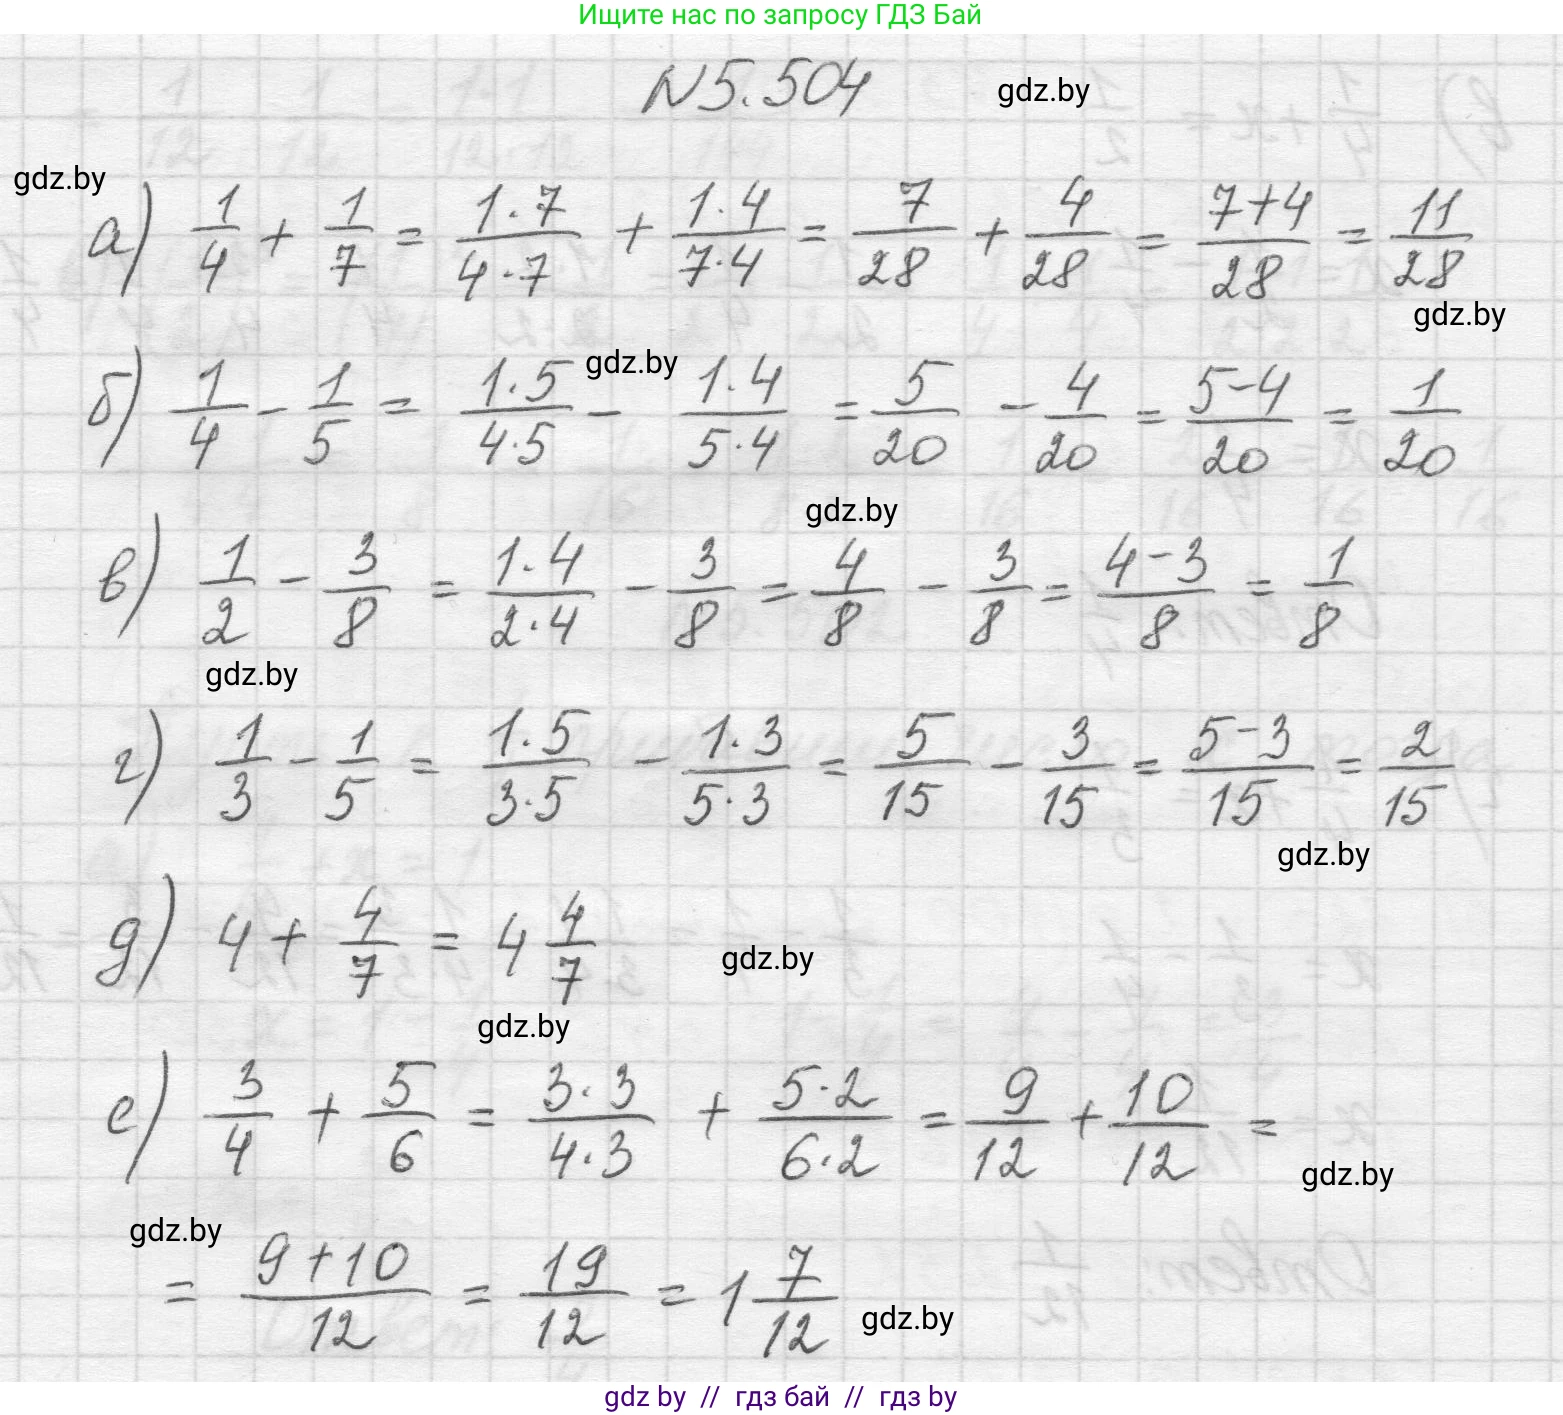 Ищите нас по запросу ГДЗ Бай
N5.504
gdz.by
gdz.by
а) 1/4 + 1/7 = 1·7/4·7 + 1·4/7·4 = 7/28 + 4/28 = 7+4/28 = 11/28
gdz.by
gdz.by
б) 1/4 - 1/5 = 1·5/4·5 - 1·4/5·4 = 5/20 - 4/20 = 5-4/20 = 1/20
gdz.by
в) 1/2 - 3/8 = 1·4/2·4 - 3/8 = 4/8 - 3/8 = 4-3/8 = 1/8
gdz.by
г) 1/3 - 1/5 = 1·5/3·5 - 1·3/5·3 = 5/15 - 3/15 = 5-3/15 = 2/15
gdz.by
д) 4 + 4/7 = 4 4/7
gdz.by
gdz.by
е) 3/4 + 5/6 = 3·3/4·3 + 5·2/6·2 = 9/12 + 10/12 =
gdz.by
gdz.by
= 9+10/12 = 19/12 = 1 7/12
gdz.by
gdz by // гдз бай // гдз by